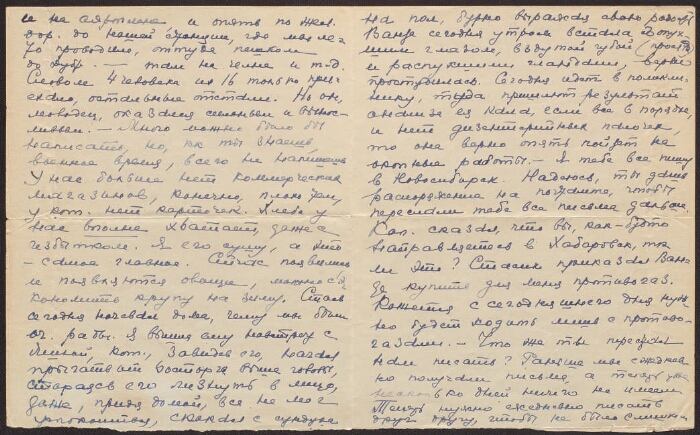 и не аэроплане и опять по жел.
дор. до нашей станции, где мал мела
Ю проводило, оттуда пешком
до Дубр. — там на челна и т.д.
Словом 4 человека из 16 только прие-
хало, остальные отстали. Но он,
молодец, оказался сильным и вынос-
ливым. — Много можно было бы
написать, но, как ты знаешь,
военное время, всего не напишешь
У нас больше нет коммерческих
магазинов, конечно, плохо тем,
у кот. нет карточек. Хлеба у
нас вполне хватает, даже с
избытком. Я его сушу, а это
— самое главное. Сейчас появились
и появляются овощи, можно сэ
кономить крупу на зиму. Стась
сегодня ночевал дома, чему мы были
оч. рады. Я вышла ему навстречу с
Линой, кот., завидев его, начала
прыгать от восторга выше головы,
стараясь его лизнуть в лицо,
даже, придя домой, все не мог
успокоиться, скакал с сундука
на пол, бурно выражая свою радость
Ваня сегодня утром встала с опух-
шим глазом, вздутой губой (простуда)
и распухшими гландами, верно
простудилась. Сегодня идет в поликли-
нику, туда принесут результат
анализа ее кала, если все в порядке,
и нет дизентерийных палочек,
то она верно опять пойдет на
окопные работы. — Я тебе все пишу
в Новосибирск. Надеюсь, ты дала
распоряжение на почтамте, чтобы
пересылали тебе все письма дальше.
Кап. сказал, что вы, как-будто
направляетесь в Хабаровск, так
ли это? Стасик приказал Ване
купить для меня противогаз.
Кажется с сегодняшнего дня нуж
но будет ходить лишь с противо-
газами. — Что же ты перестал
нам писать? Раньше мы ежеднев
но получали письма, а теперь уже
несколько дней ничего не имеем
Теперь нужно ежедневно писать
друг другу, чтобы не было слишком